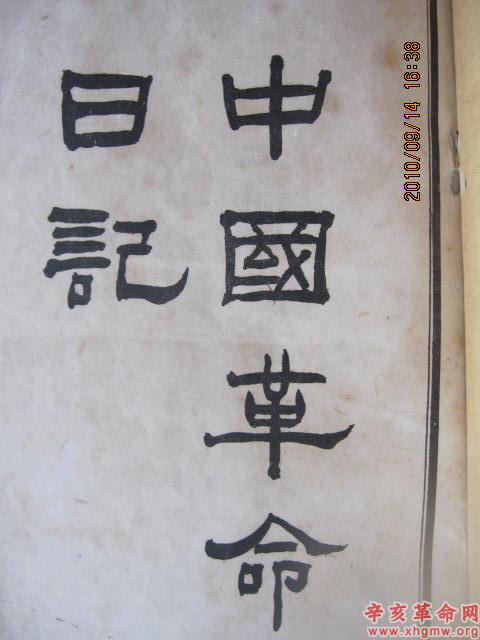 中國革命
日記
2010/09/14 16:38
辛亥革命网
www.xhgmw.org